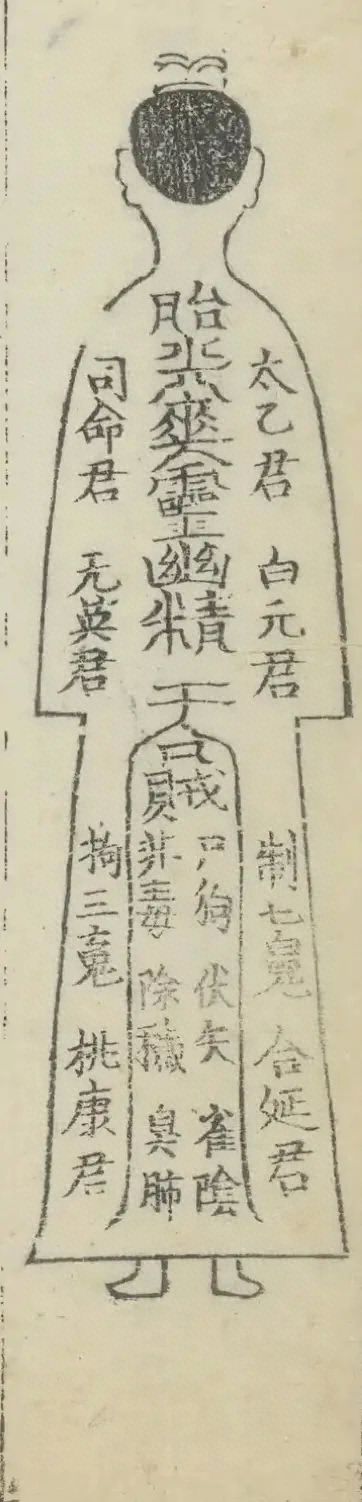 太乙君 白元君
胎光爽靈幽精
司命君 无英君
制七魄 合延君
尸狗 伏矢 雀陰
吞賊 非毒 除穢 臭肺
拘三魂 桃康君